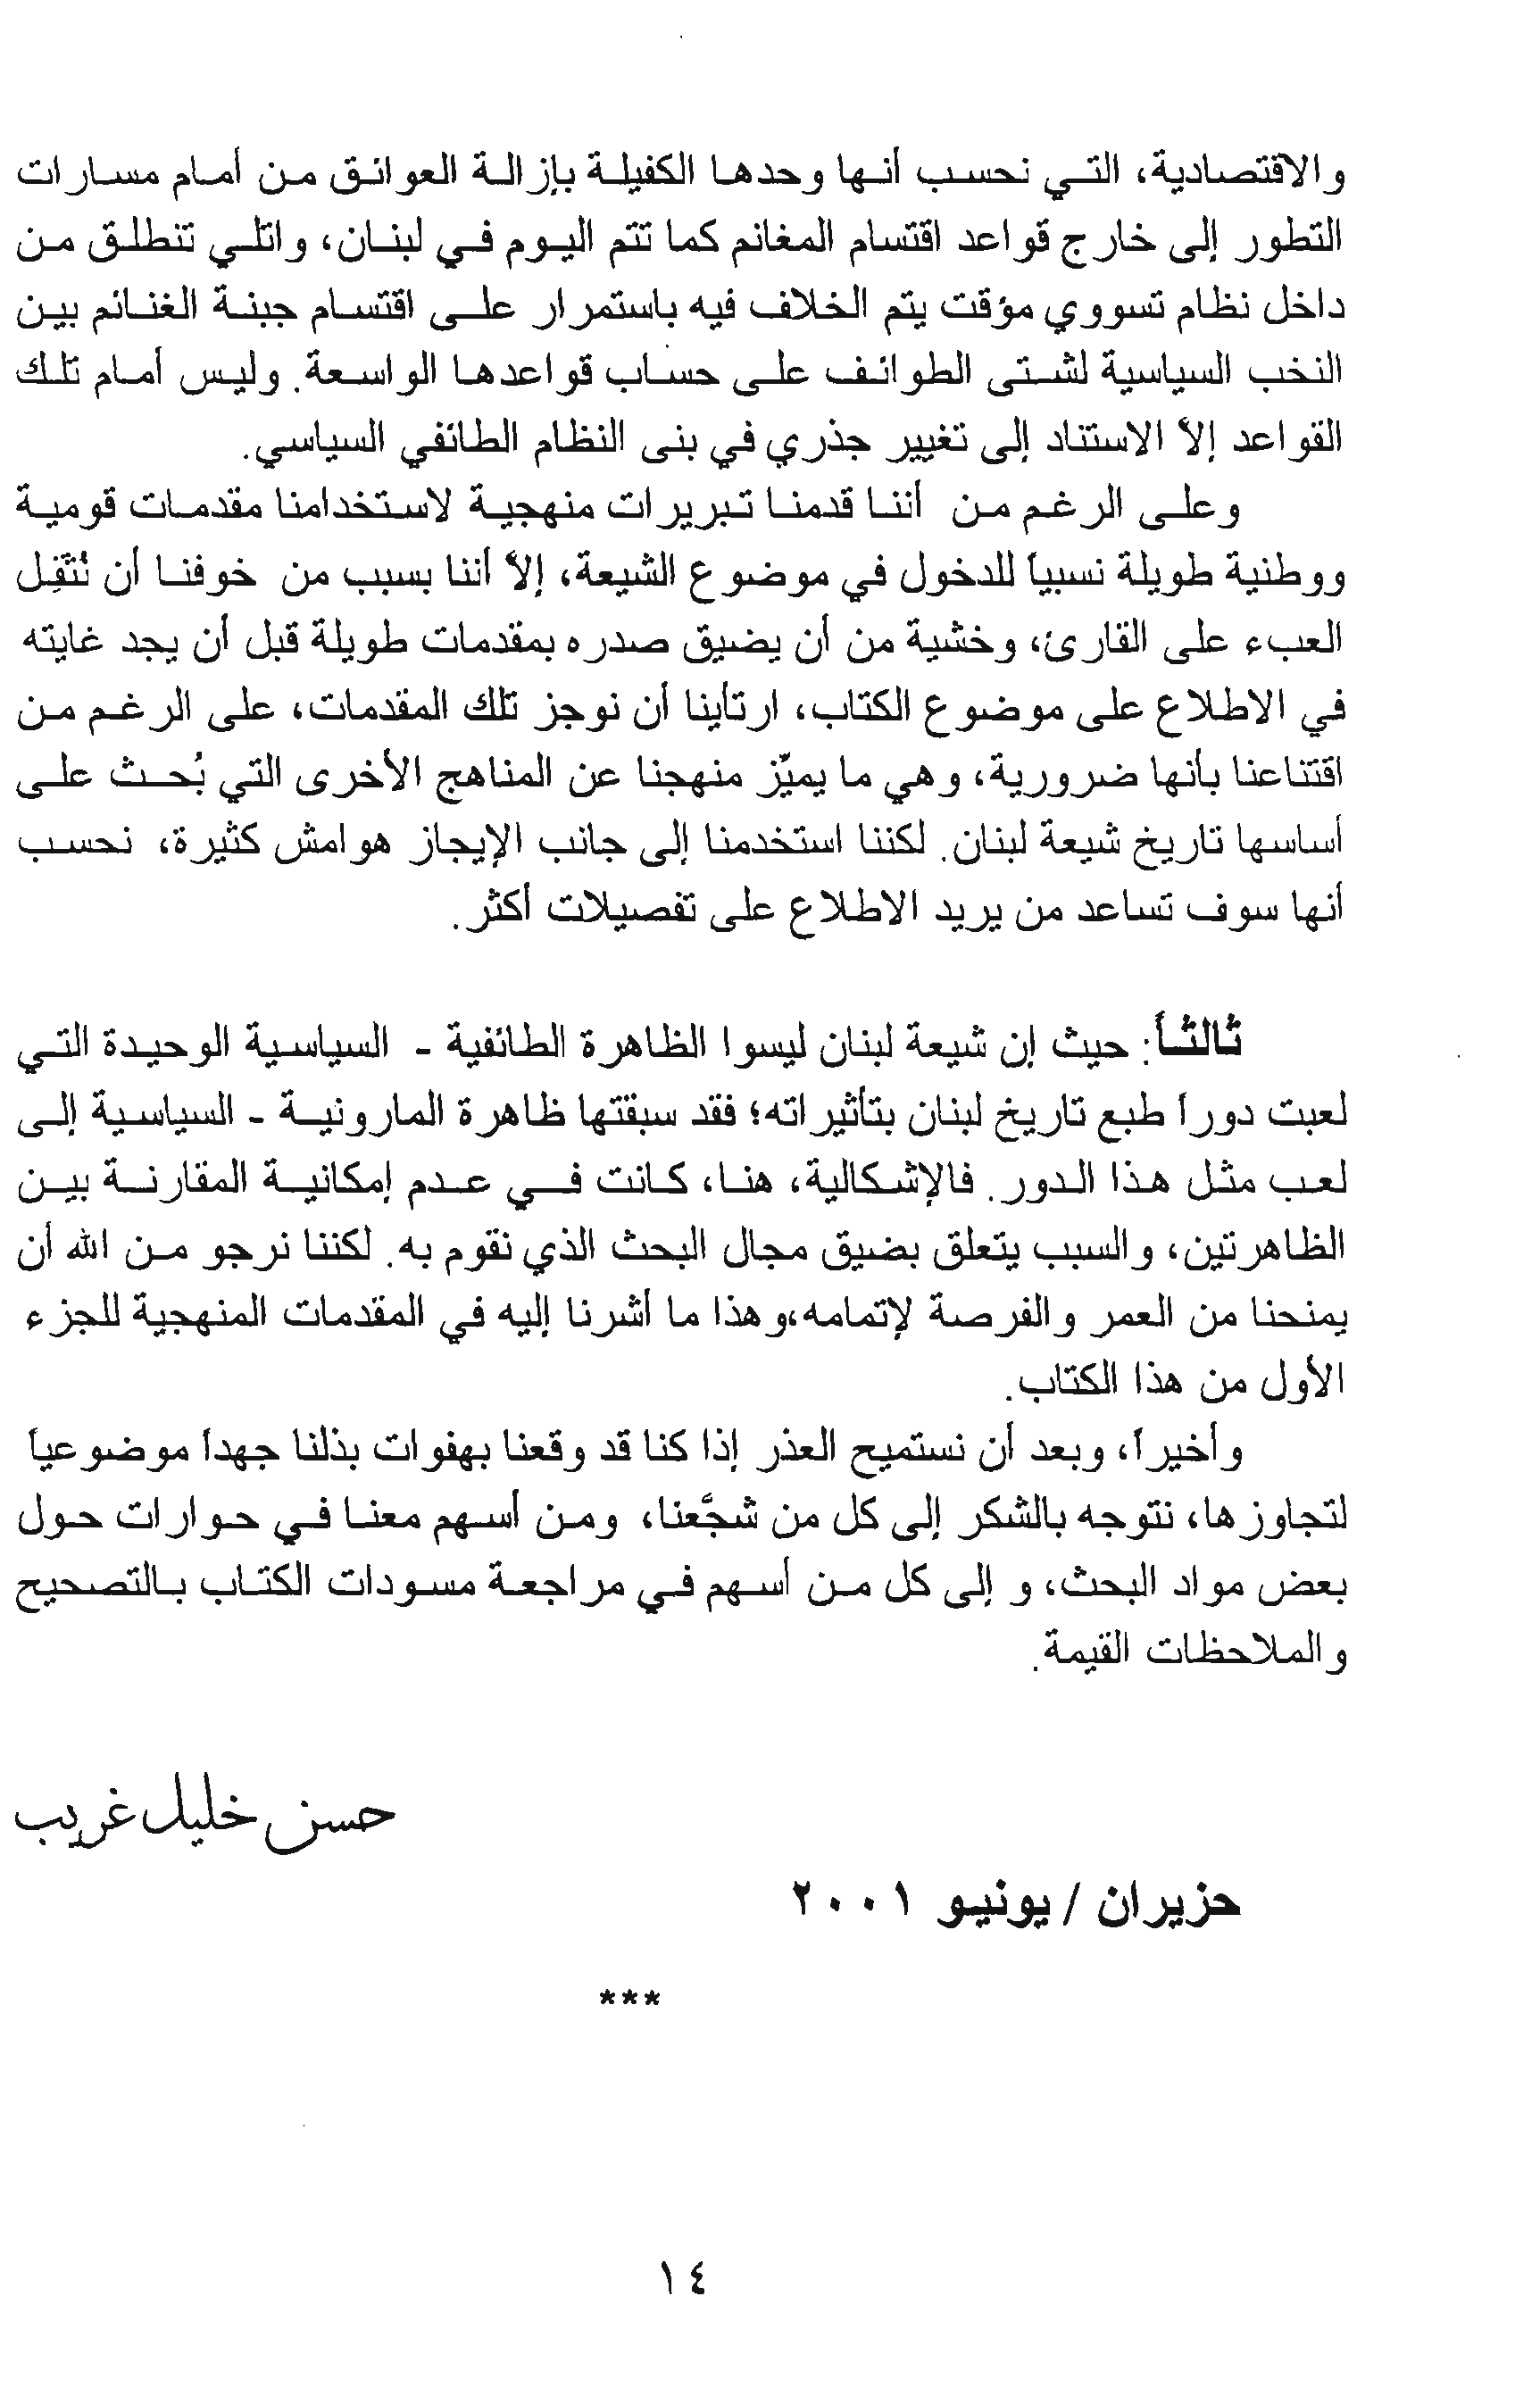 والاقتصادية، التي نحسب أنها وحدها الكفيلة بإزالة العوائق من أمام مسارات
التطور إلى خارج قواعد اقتسام المغانم كما تتم اليوم في لبنان، واتلي تنطلق من
داخل نظام تسووي مؤقت يتم الخلاف فيه باستمرار على اقتسام جبنة الغنائم بين
النخب السياسية لشتى الطوائف على حساب قواعدها الواسعة. وليس أمام تلك
القواعد إلاَّ الاستناد إلى تغيير جذري في بنى النظام الطائفي السياسي.
وعلى الرغم من أننا قدمنا تبريرات منهجية لاستخدامنا مقدمات قومية
ووطنية طويلة نسبياً للدخول في موضوع الشيعة، إلاَّ أننا بسبب من خوفنا أن نُثقِل
العبء على القارئ، وخشية من أن يضيق صدره بمقدمات طويلة قبل أن يجد غايته
في الاطلاع على موضوع الكتاب، ارتأينا أن نوجز تلك المقدمات، على الرغم من
اقتناعنا بأنها ضرورية، وهي ما يميِّز منهجنا عن المناهج الأخرى التي بُحث على
أساسها تاريخ شيعة لبنان. لكننا استخدمنا إلى جانب الإيجاز هوامش كثيرة، نحسب
أنها سوف تساعد من يريد الاطلاع على تفصيلات أكثر.
ثالثاً: حيث إن شيعة لبنان ليسوا الظاهرة الطائفية - السياسية الوحيدة التي
لعبت دوراً طبع تاريخ لبنان بتأثيراته؛ فقد سبقتها ظاهرة المارونية - السياسية إلى
لعب مثل هذا الدور. فالإشكالية، هنا، كانت في عدم إمكانية المقارنة بين
الظاهرتين، والسبب يتعلق بضيق مجال البحث الذي نقوم به. لكننا نرجو من الله أن
يمنحنا من العمر والفرصة لإتمامه،وهذا ما أشرنا إليه في المقدمات المنهجية للجزء
الأول من هذا الكتاب.
وأخيراً، وبعد أن نستميح العذر إذا كنا قد وقعنا بهفوات بذلنا جهداً موضوعياً
لتجاوزها، نتوجه بالشكر إلى كل من شجَّعنا، ومن أسهم معنا في حوارات حول
بعض مواد البحث، و إلى كل من أسهم في مراجعة مسودات الكتاب بالتصحيح
والملاحظات القيمة.
حسن خليل غريب
حزيران / يونيو ٢٠٠١
***
١٤